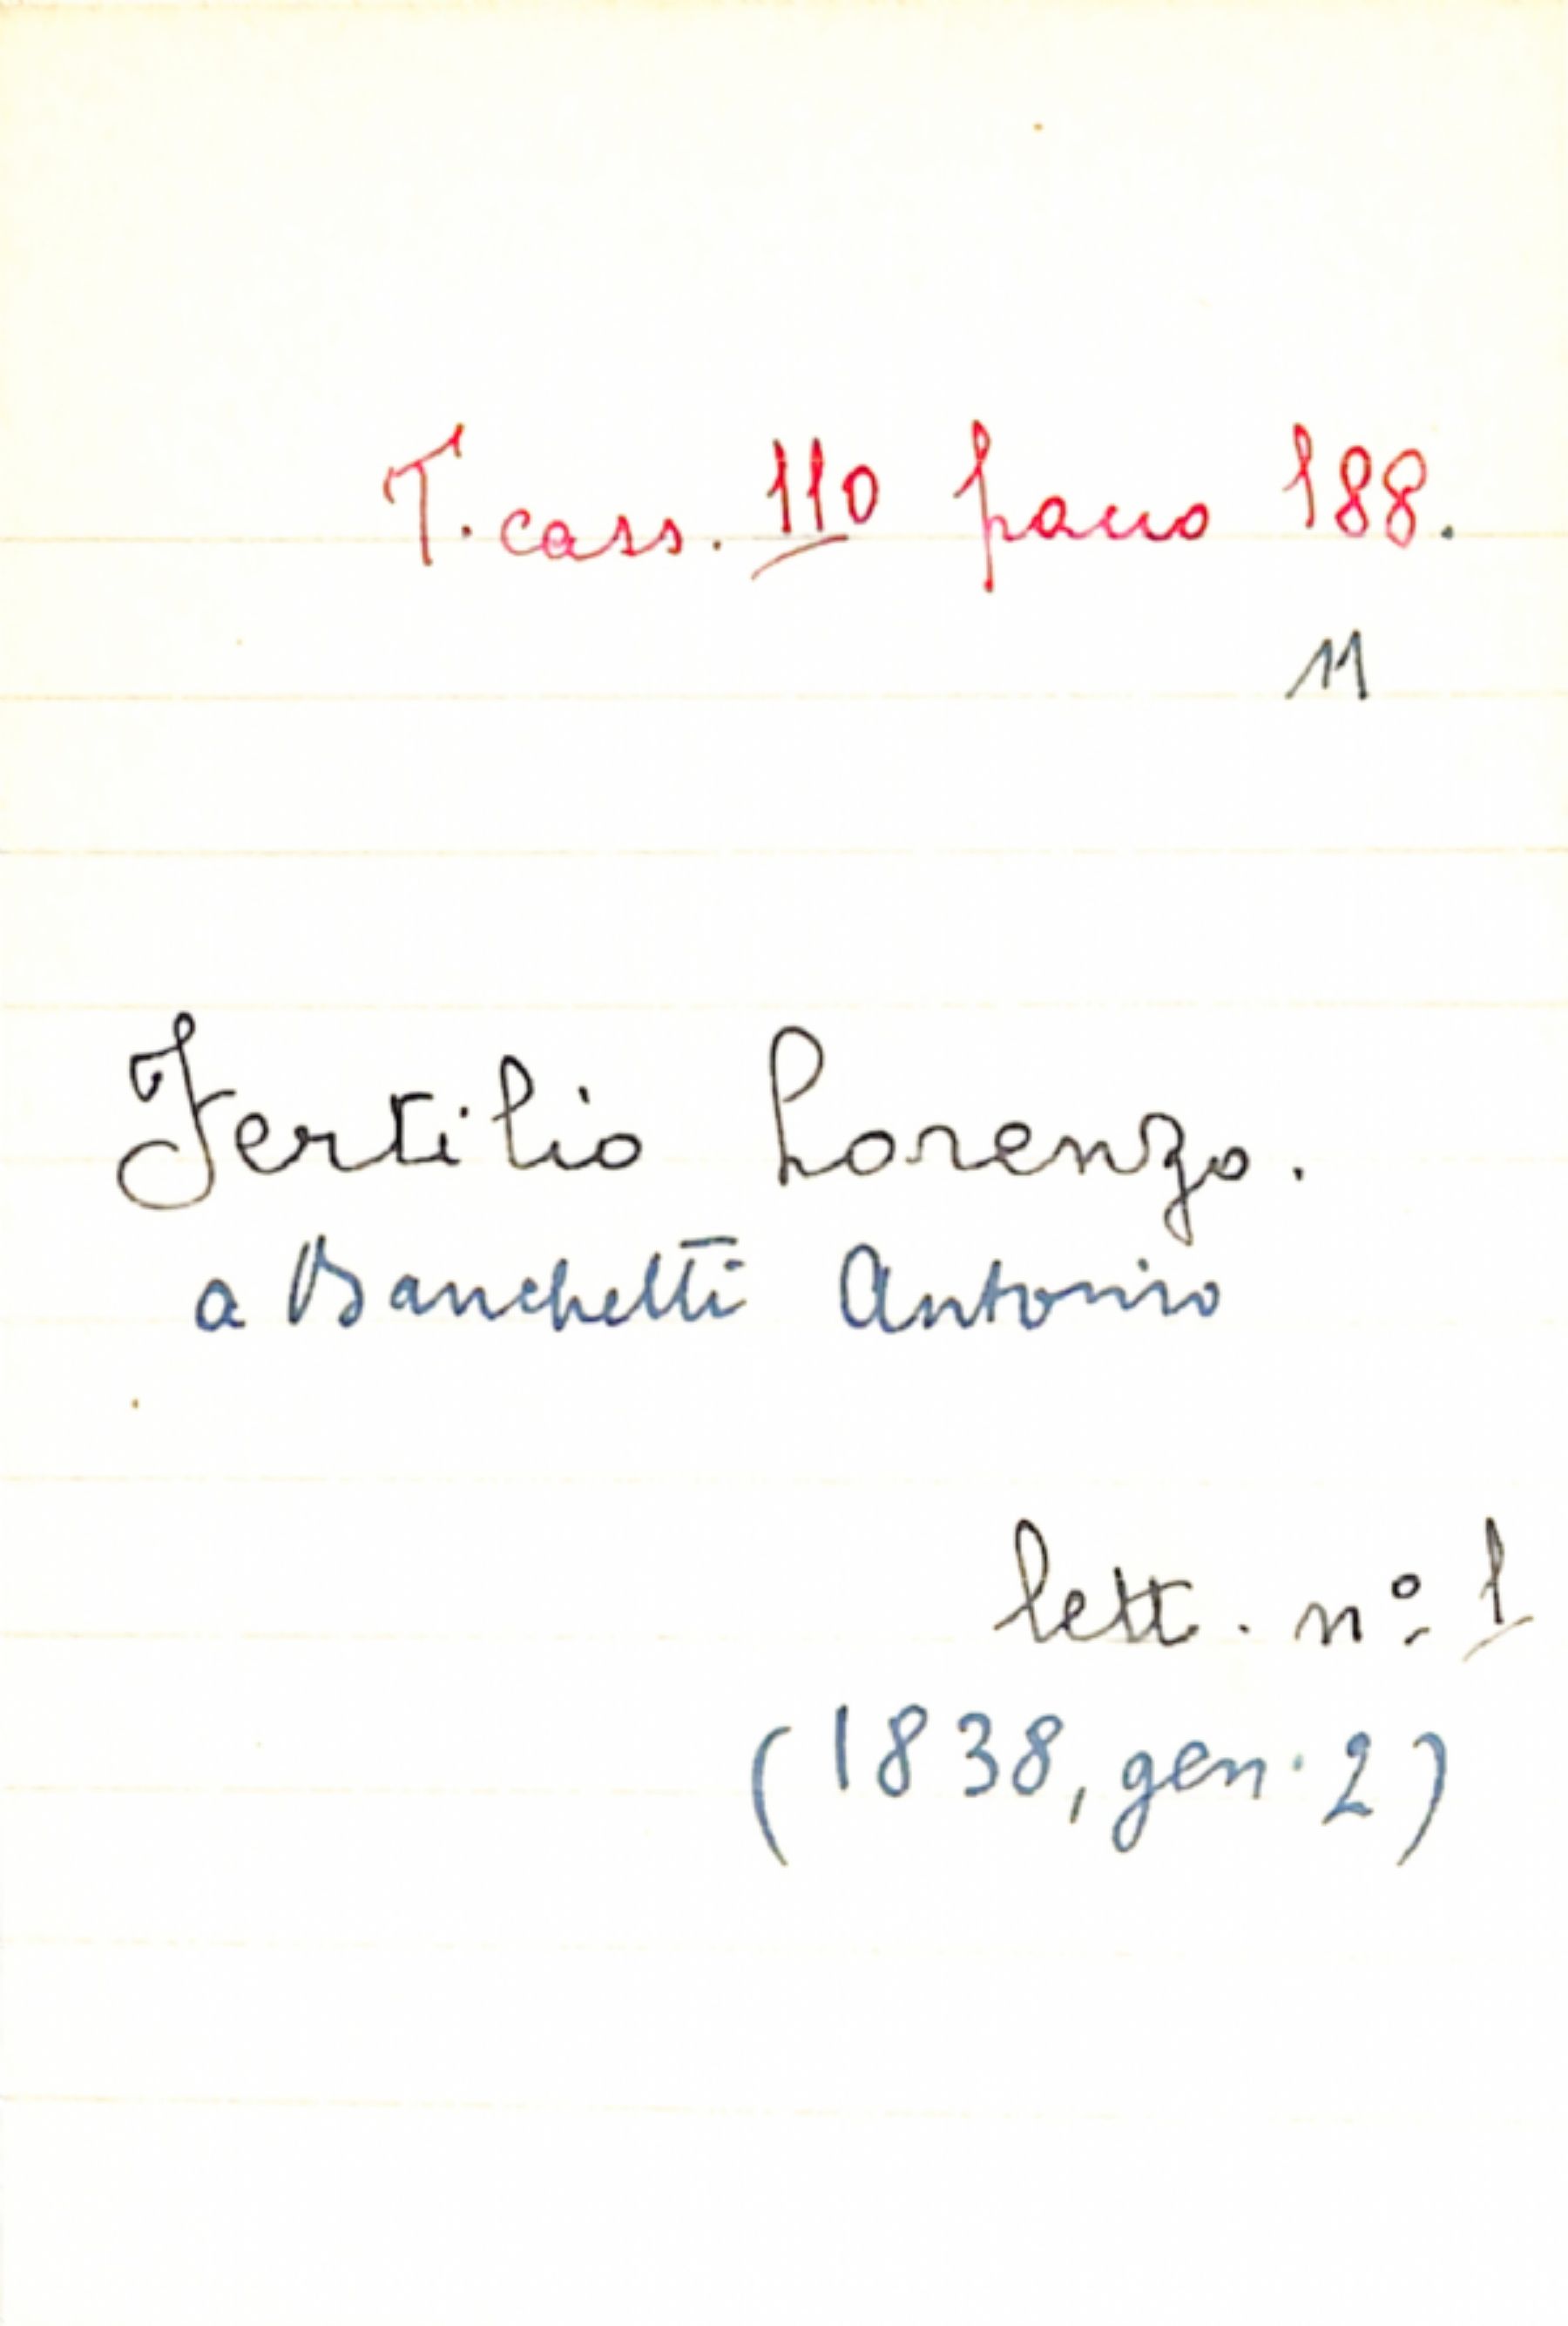 T. cass. 110 pacco 188.
11
Fertilio Lorenzo.
a Banchetti Antonio
lett. nº 1
(1838, gen. 2)